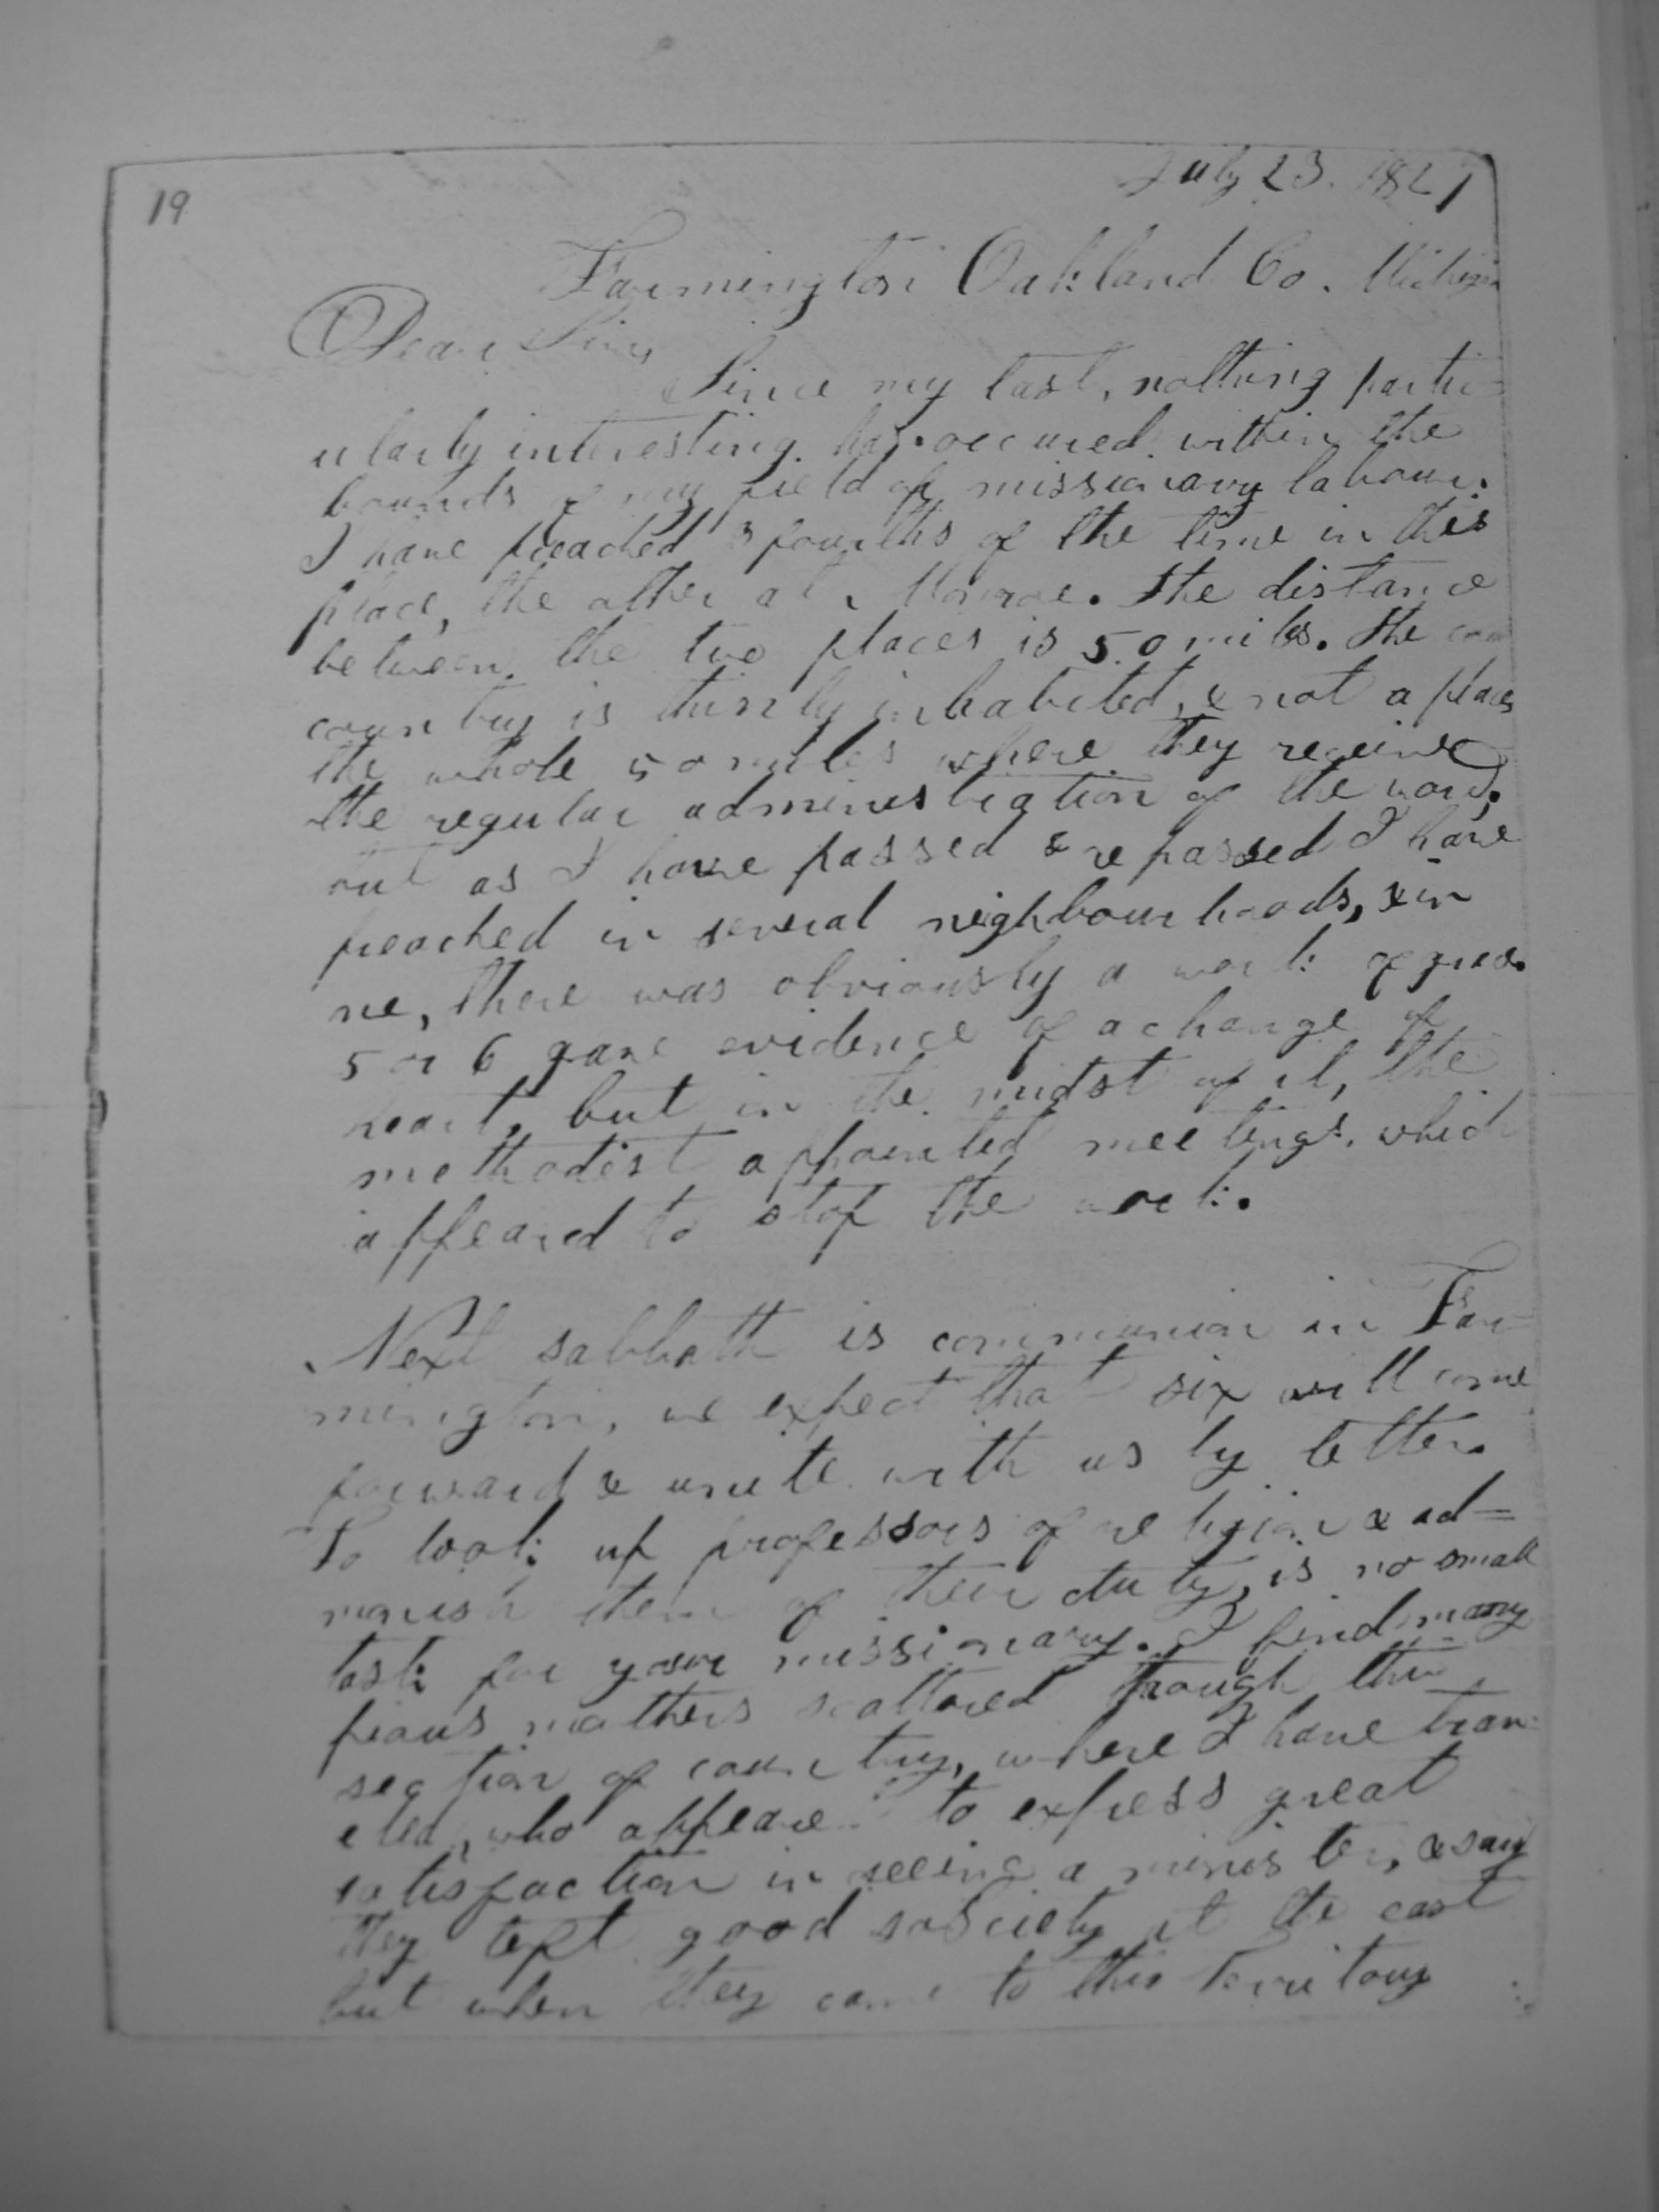 19
July 23. 1827
Farmington Oakland Co. Michigan
Dear Sir,
Since my last, nothing partic=
ularly interesting has occured within the
bounds of my field of missionary labour.
I have preached 3 fourths of the time in this
place, the other at Monroe. The distance
between the two places is 50 miles. The
country is thinly inhabited, & not a place
the whole 50 miles where they receive
the regular administration of the word,
but as I have passed & repassed I have
preached in several neighbourhoods, & in
ne, there was obviously a work of grace.
5 or 6 gave evidence of a change of
heart, but in the midst of it, the
methodist appointed meetings, which
appeared to stop the work.
Next sabbath is communion in Far-
mington, we expect that six will come
forward & unite with us by letter.
To look up professors of religion & ad=
monish them of their duty, is no small
task for your missionary. I find many
pious mothers scattered through this
section of country, where I have trav-
eled, who appeare to express great
satisfaction in seeing a minister, & say
they left good sosciety at the east
but when they came to this Territory